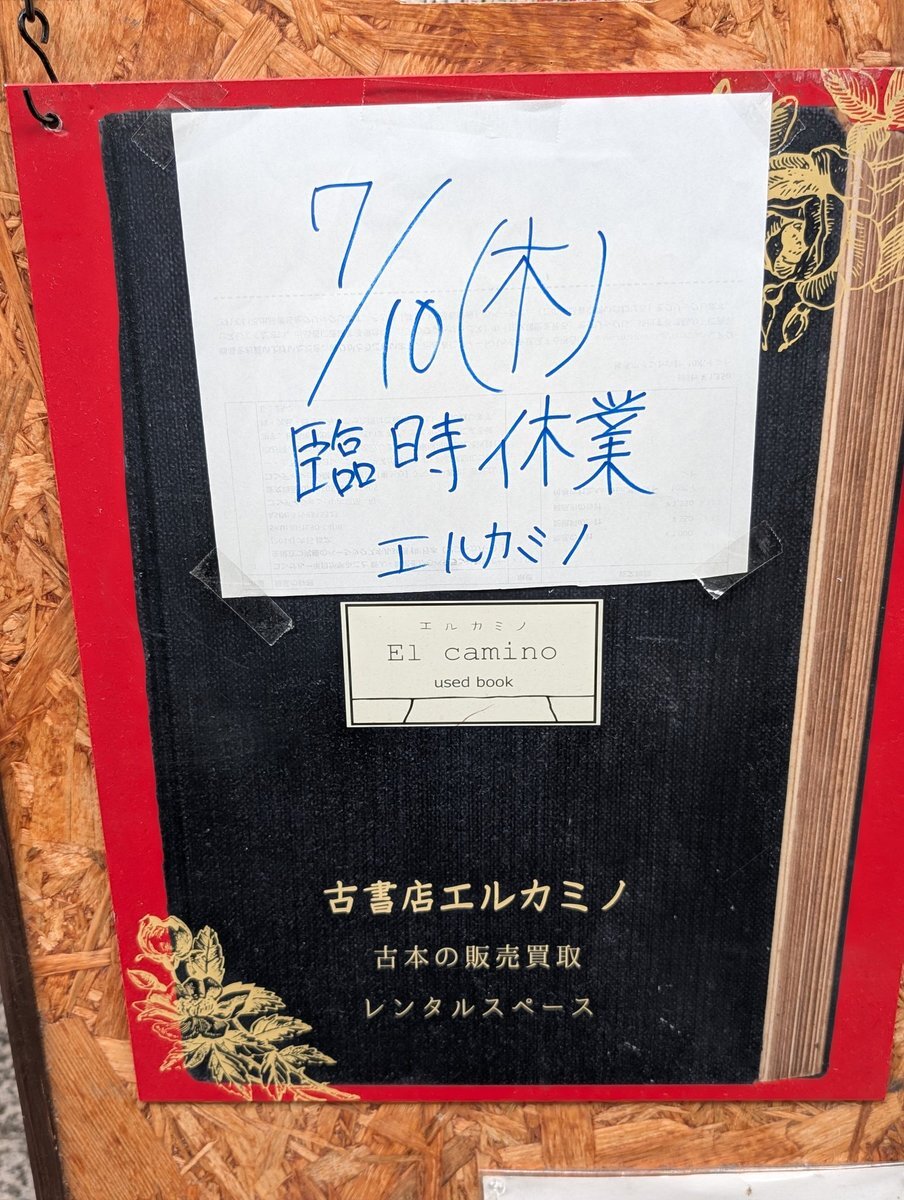 7/10(木)
臨時休業
エルカミノ
エルカミノ
El camino
used book
古書店エルカミノ
古本の販売買取
レンタルスペース